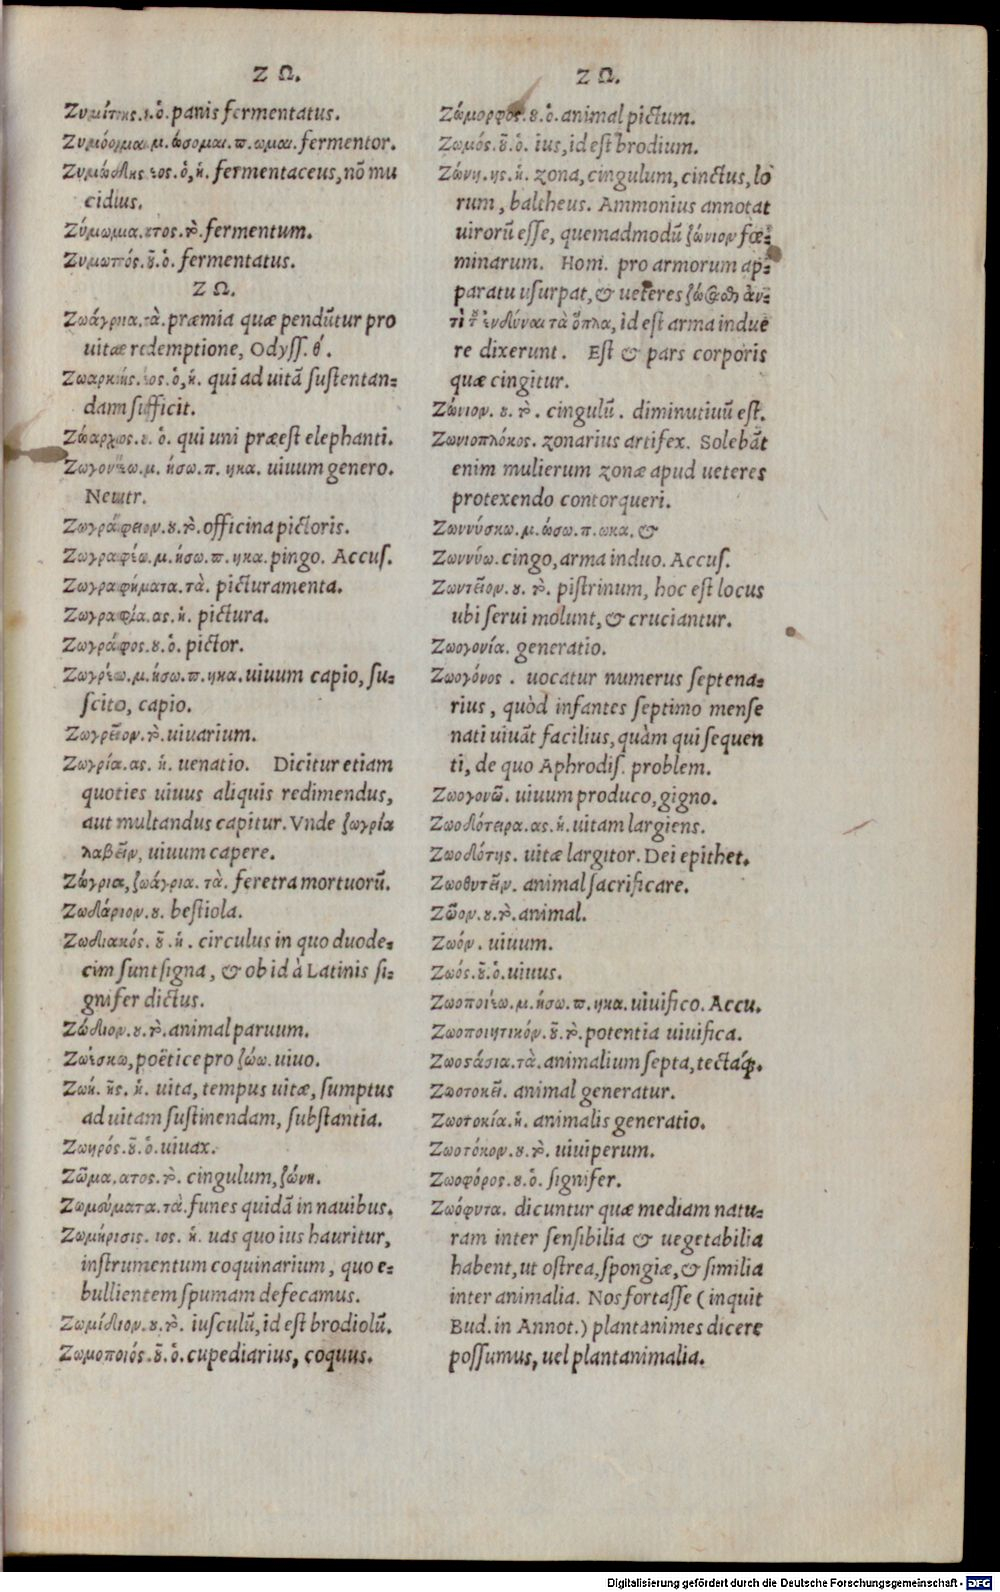 Ζ Ω.
Ζυμίτης.ȣ.ὁ. panis fermentatus.
Ζυμόομαι.μ.ώσομαι.π.ωμαι. fermentor.
Ζυμώδης εος.ὁ,ἡ. fermentaceus, nõ mu
cidus.
Ζύμωμα.ατος.τὸ. fermentum.
Ζυμωτός.ȣ͂.ὁ. fermentatus.
Ζ Ω.
Ζωάγρια.τὰ. præmia quæ pendũtur pro
uitæ redemptione, Odyss. θ΄.
Ζωαρκής.έος.ὁ,ἡ. qui ad uitã sustentan-
dam sufficit.
Ζώαρχος.ȣ.ὁ. qui uni præest elephanti.
Ζωγονέω.μ.ήσω.π.ηκα. uiuum genero.
Neutr.
Ζωγραφεῖον.ȣ.τὸ. officina pictoris.
Ζωγραφέω.μ.ήσω.π.ηκα. pingo. Accus.
Ζωγραφήματα.τὰ. picturamenta.
Ζωγραφία.ας.ἡ. pictura.
Ζωγράφος.ȣ.ὁ. pictor.
Ζωγρέω.μ.ήσω.π.ηκα. uiuum capio, su-
scito, capio.
Ζωγρεῖον.τὸ. uiuarium.
Ζωγρία.ας.ἡ. uenatio. Dicitur etiam
quoties uiuus aliquis redimendus,
aut multandus capitur. Vnde ζωγρία
λαβεῖν, uiuum capere.
Ζώγρια, ζωάγρια.τὰ. feretra mortuorũ.
Ζωδάριον.ȣ. bestiola.
Ζωδιακός.ȣ͂.ἡ. circulus in quo duode-
cim sunt signa, & ob id à Latinis si-
gnifer dictus.
Ζώδιον.ȣ.τὸ. animal paruum.
Ζωΐσκω, poëtice pro ζώω. uiuo.
Ζωή.ῆς.ἡ. uita, tempus uitæ, sumptus
ad uitam sustinendam, substantia.
Ζωηρός.ȣ͂.ὁ. uiuax.
Ζῶμα.ατος.τὸ. cingulum, ζώνη.
Ζωμεύματα.τὰ. funes quidã in nauibus.
Ζωμήρισις.ιος.ἡ. uas quo ius hauritur,
instrumentum coquinarium, quo e-
bullientem spumam defecamus.
Ζωμίδιον.ȣ.τὸ. iusculũ, id est brodiolũ.
Ζωμοποιός.ȣ͂.ὁ. cupediarius, coquus.
Ζ Ω.
Ζώμορφος.ȣ.ὁ. animal pictum.
Ζωμός.ȣ͂.ὁ. ius, id est brodium.
Ζώνη.ης.ἡ. zona, cingulum, cinctus, lo
rum, baltheus. Ammonius annotat
uirorũ esse, quemadmodũ ζώνιον fœ-
minarum. Hom. pro armorum ap-
paratu usurpat, & ueteres ἀν-
τὶ τȣ͂ ἐνδύναι τὰ ὅπλα, id est arma indue
re dixerunt. Est & pars corporis
quæ cingitur.
Ζώνιον.ȣ.τὸ. cingulũ. diminutiuũ est.
Ζωνιοπλόκος. zonarius artifex. Solebãt
enim mulierum zonæ apud ueteres
protexendo contorqueri.
Ζωννύσκω.μ.ώσω.π.ωκα. &
Ζωννύω. cingo, arma induo. Accus.
Ζωντεῖον.ȣ.τὸ. pistrinum, hoc est locus
ubi serui molunt, & cruciantur.
Ζωογονία. generatio.
Ζωογόνος. uocatur numerus septena-
rius, quòd infantes septimo mense
nati uiuãt facilius, quàm qui sequen
ti, de quo Aphrodis. problem.
Ζωογονῶ. uiuum produco, gigno.
Ζωοδότειρα.ας.ἡ. uitam largiens.
Ζωοδότης. uitæ largitor. Dei epithet.
Ζωοθυτεῖν. animal sacrificare.
Ζῶον.ȣ.τὸ. animal.
Ζωόν. uiuum.
Ζωός.ȣ͂.ὁ. uiuus.
Ζωοποιέω.μ.ήσω.π.ηκα. uiuifico. Accu.
Ζωοποιητικόν.ȣ͂.τὸ. potentia uiuifica.
Ζωοϛάσια.τὰ. animalium septa, tectaq́;.
Ζωοτοκεῖ. animal generatur.
Ζωοτοκία.ἡ. animalis generatio.
Ζωοτόκον.ȣ.τὸ. uiuiperum.
Ζωοφόρος.ȣ.ὁ. signifer.
Ζωόφυτα. dicuntur quæ mediam natu-
ram inter sensibilia & uegetabilia
habent, ut ostrea, spongiæ, & similia
inter animalia. Nos fortasse (inquit
Bud. in Annot.) plantanimes dicere
possumus, uel plantanimalia.
Digitalisierung gefördert durch die Deutsche Forschungsgemeinschaft - DFG